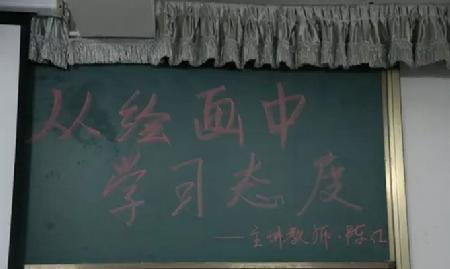 从绘画中
学习态度
——主讲教师·陈仁